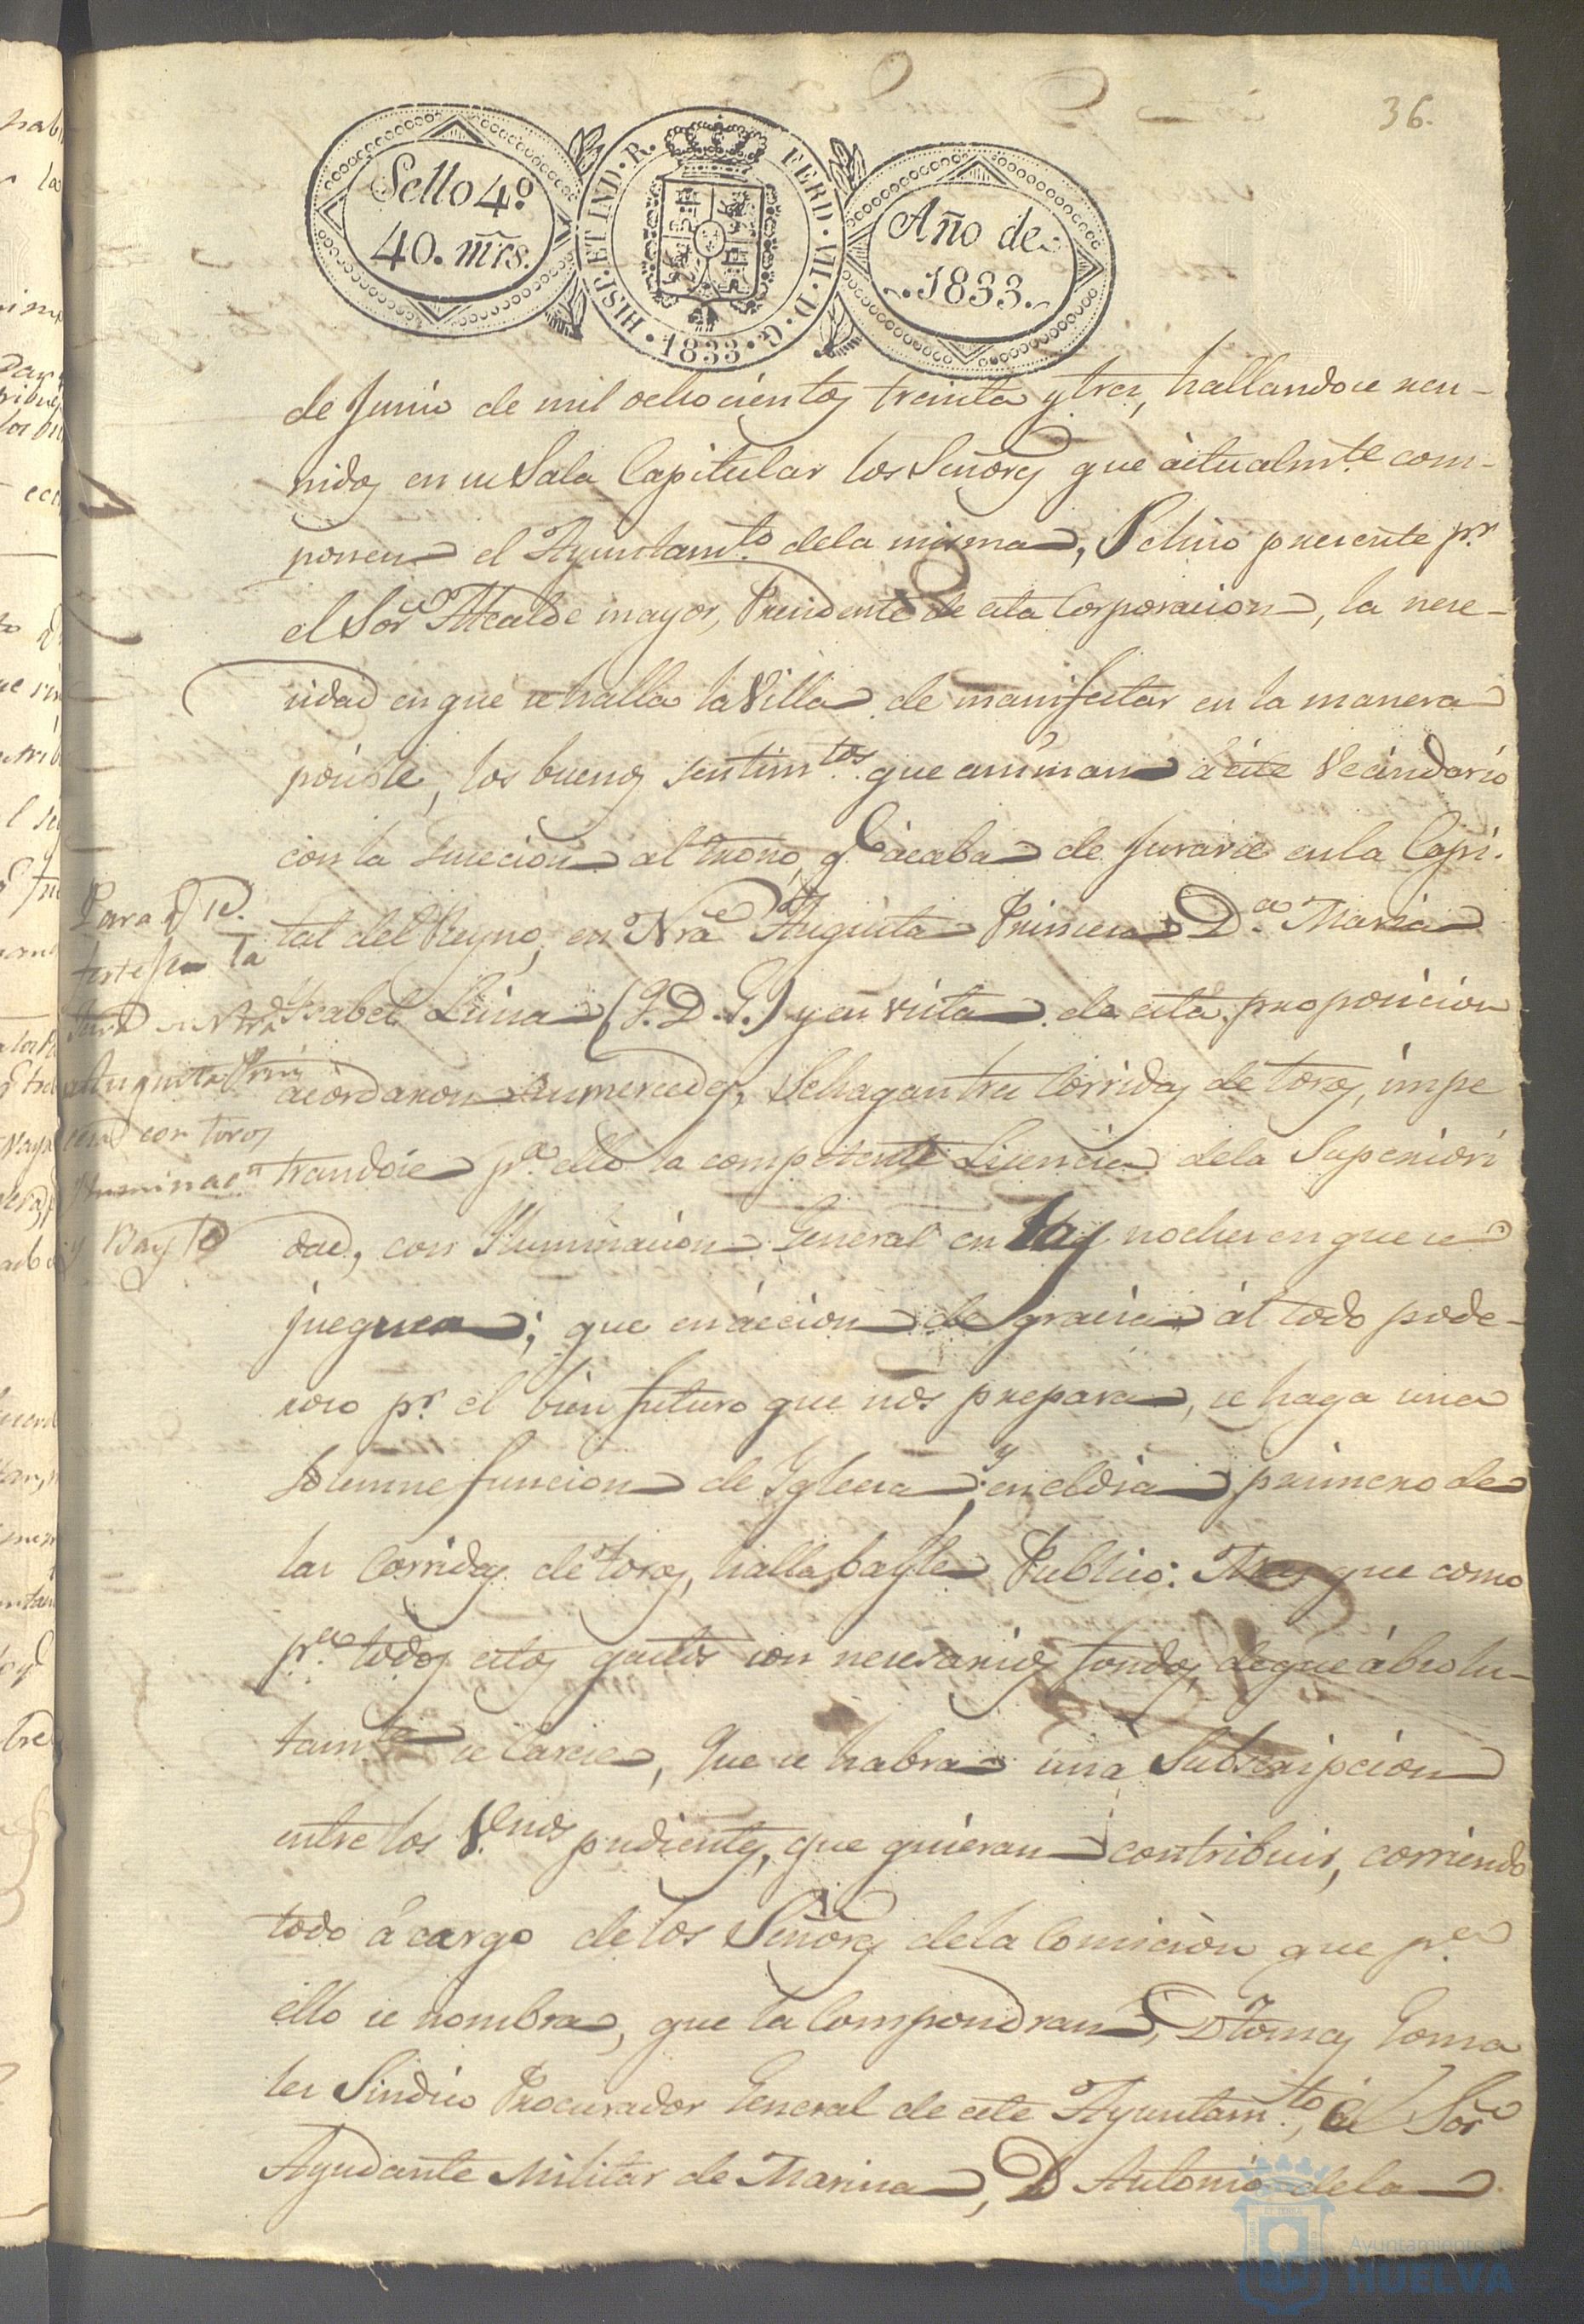 36.
Sello 4º
40. mrs.
HISP. ET IND. R. FERD. VII. D. G. 1833
Año de
1833.
de Junio de mil ochocientos treinta y tres, hallandose reu-
nidos en su Sala Capitular los Señores que áctualmte com-
ponen el Ayuntamto dela misma, Se hiso presente pr
el Sor Alcalde mayor, Presidente de esta Corporacion, la nese-
sidad en que se halla la Villa de manifestar en la manera
posible, los buenos sentimtos que animan á este Vecindario
con la suecion al trono, qe ácaba de Jurarse en la Capi-
tal del Reyno, en Nra Augusta Prinsesa Da Maria
Ysabel Luisa (Q. D. G.) y en vista de esta proposicion
acordaron sus mercedes, Se hagan tres Corridas de toros, impe
trandose pa ello la competente Lisencia dela Superiori
dad, con Yluminacion General en las noches en que se
jueguen; que en áccion de gracias ál todo pode-
roso pr el bien futuro que nos prepara, se haga una
solemne funcion de Yglesia, y en el dia primero de
las Corridas de toros, halla bayle Publico: Mas que como
pa todos estos gastos son nesesarios fondos, de que ábsolu-
tamte se Carese, Que se habra una Subscripcion
entre los Vcnos pudientes, que quieran contribuir, corriendo
todo á cargo de los Señores dela Comición que pa
ello se nombra, que la Compondran, Dn Tomas Gonsa
les Sindico Procurador General de este Ayuntamto, el Sor
Ayudante Militar de Marina, D Antonio dela
Para q. se
feste
Jura de Nra
Augusta Prin
cesa con toros
Yluminacn
y Bayle
Ayuntamiento de
HUELVA